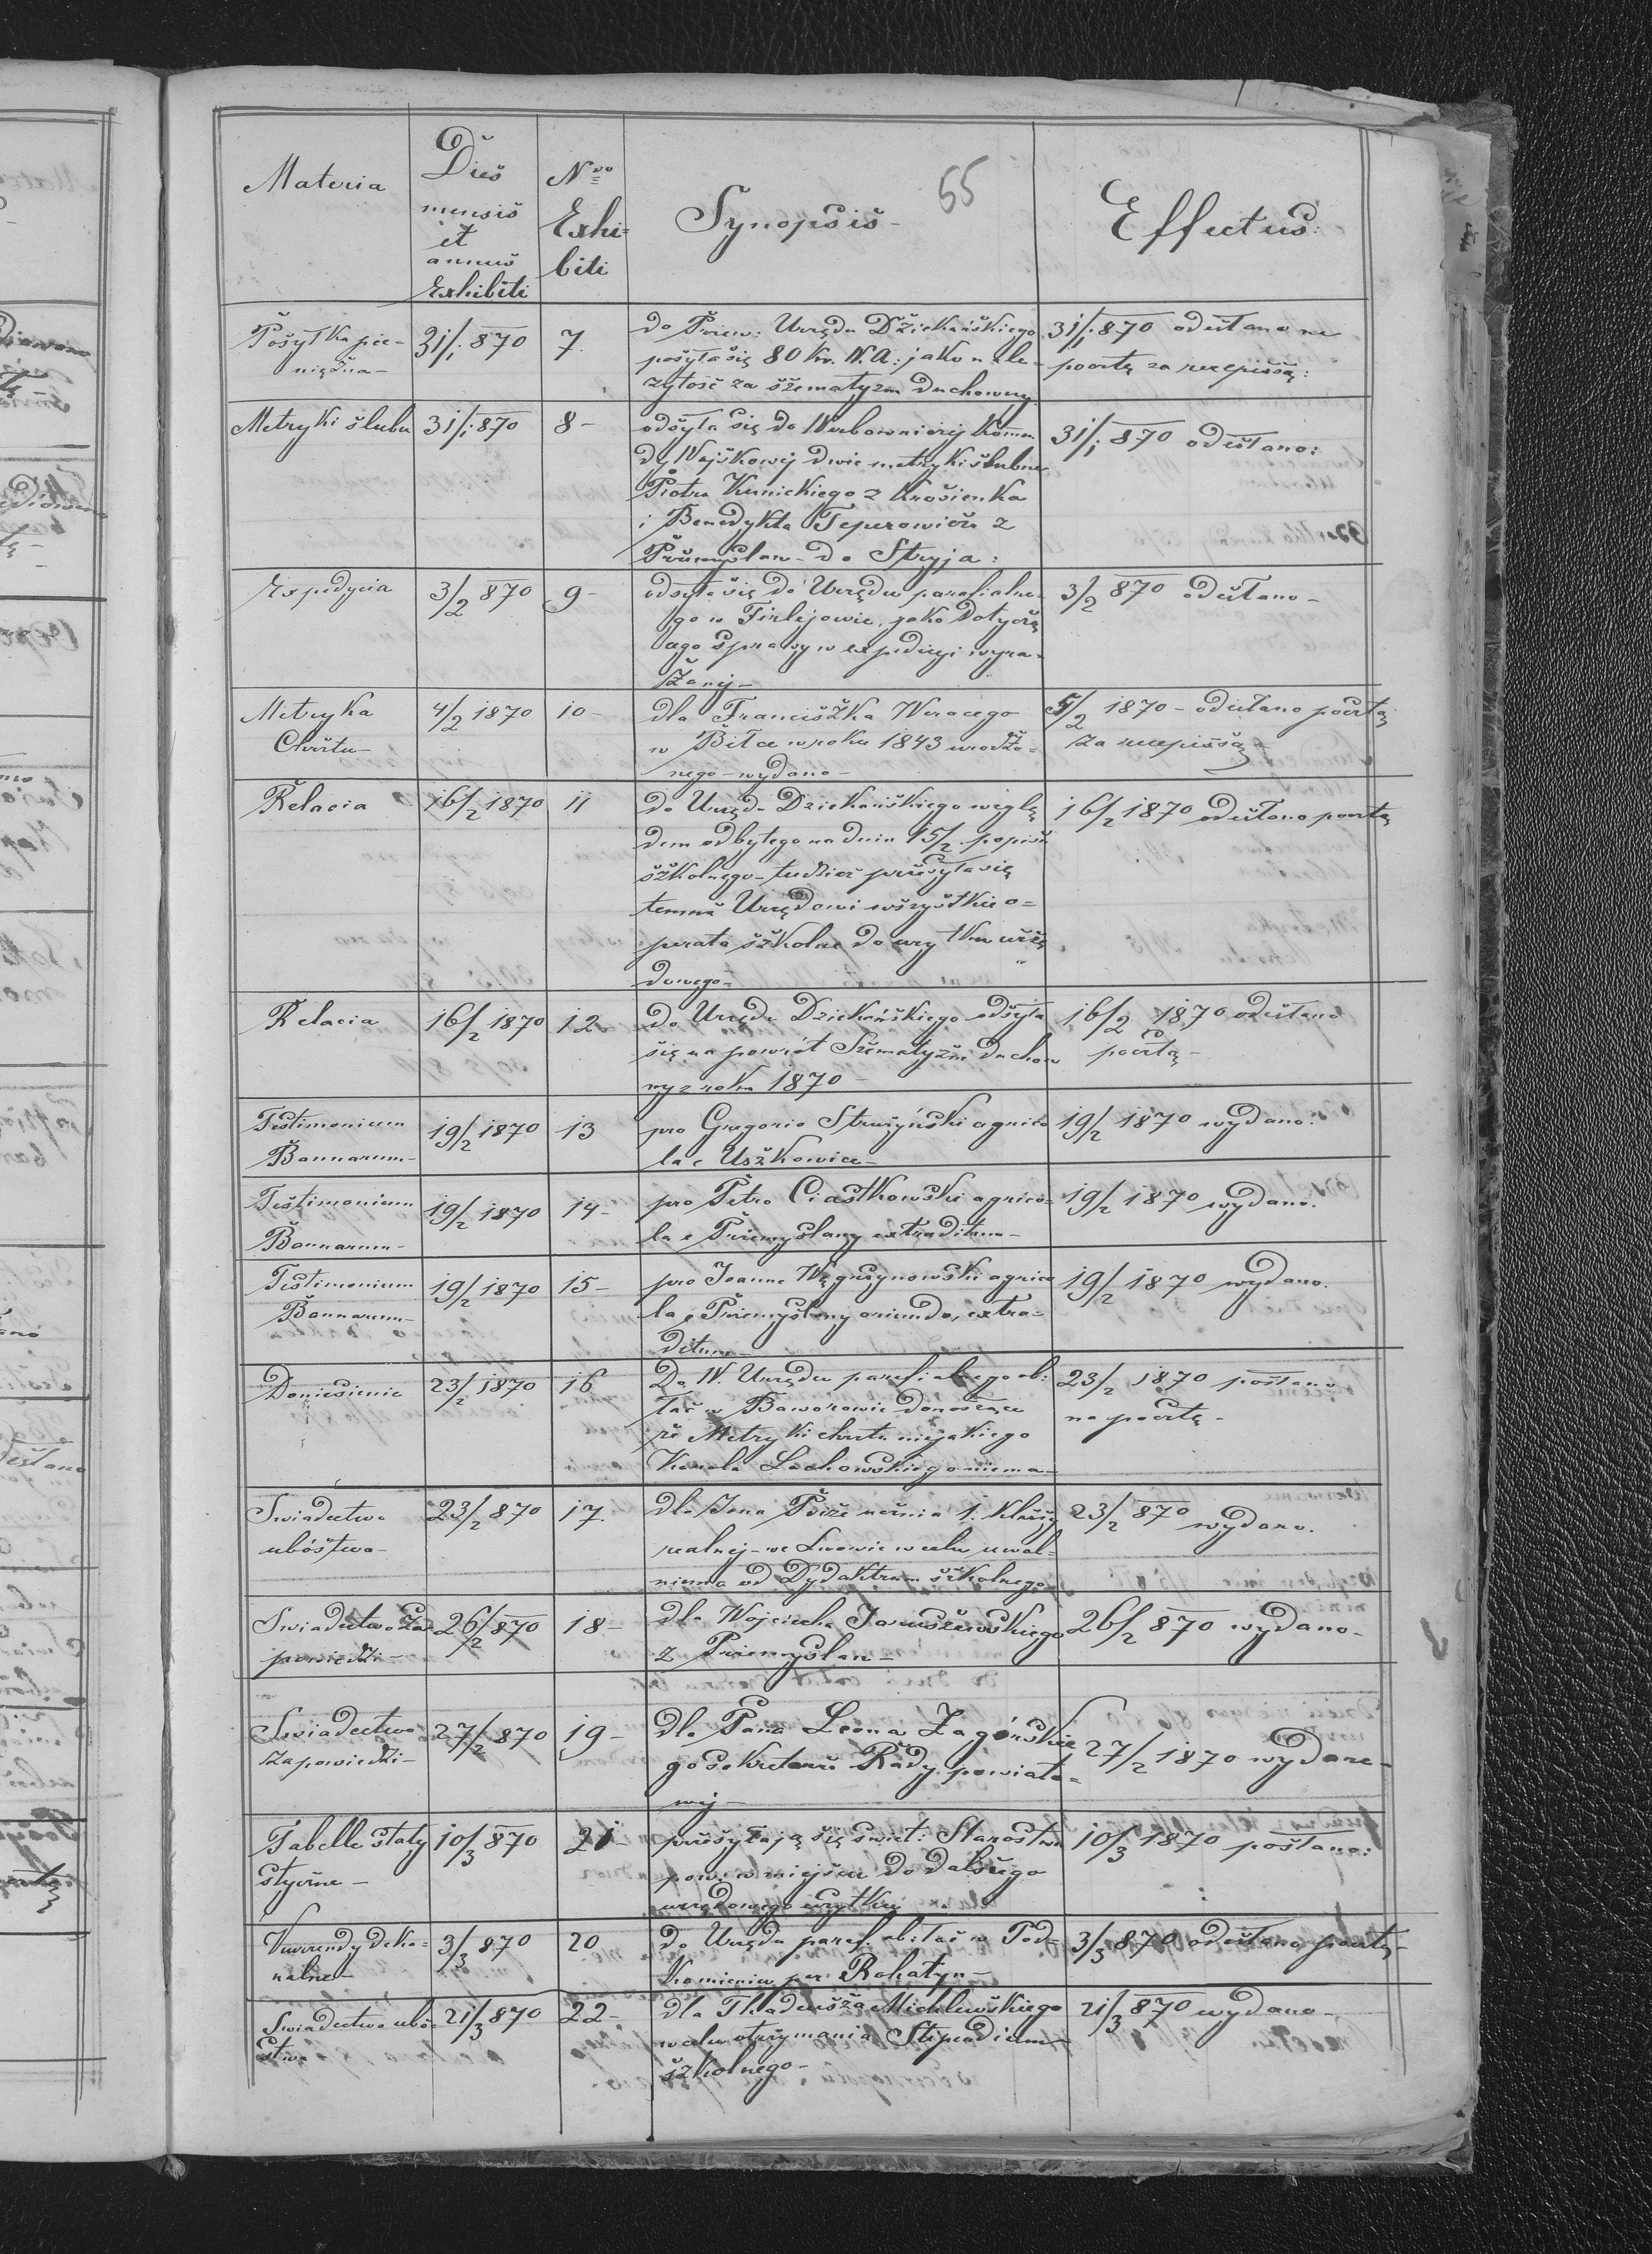 55
Materia
Dies
mensis
et
annus
Exhibiti
Nro
Exhi=
biti
Synopsis -
Effectus:
Posyłka pie-
niężna -
31/1 870
7.
do Przew: Urzędu Dziekańskiego
posyła się 80 kr. W.A: jako nale-
zytość za szematyzm duchowny.
31/1 870 odesłano na
pocztę za recepissą:
Metryki ślubu
31/1 870
8 -
odsyła się do Werbowniczej Komen
dy Wojskowej dwie metryki ślubne
Piotra Kunickiego z Krosienka
i Benedykta Teperowicza z
Przemyślan - do Stryja:
31/1 870 odesłano:
Expedycia
3/2 870
9 -
odseła się do Urzędu parafialne-
go w Firlejowie, jako dotyczą
cego sprawy w expedicyi wyra-
żonej -
3/2 870 odesłano -
Metryka
Chrztu -
4/2 1870
10 -
dla Franciszka
w Bilce w roku 1843 urodzo=
nego - wydano -
5/2 1870 - odesłano pocztą
za recepissą -
Relacia
16/2 1870
11
do Urzędu Dziekańskiego wzglę
dem odbytego na dniu 15/2 popisu
szkolnego - tudzież przesyła się
temuż Urzędowi wszystkie o=
perata szkolne do użytku urzę
dowego -
16/2 1870 odesłano pocztą
Relacia
16/2 1870
12
Do Urzędu Dziekańskiego odsyła
się na powrót Szematyzm duchow
ny z roku 1870 -
16/2 1870 odesłano
pocztą -
Testimonium
Bannorum -
19/2 1870
13
pro Gregorio Struzyński agrico
la e Uszkowice -
19/2 1870 wydano:
Testimonium
Bannorum -
19/2 1870
14 -
pro Petro Ciastkowski agrico=
la e Przemyślany extraditum -
19/2 1870 wydano.
Testimonium
Bannorum -
19/2 1870
15 -
pro Joanne Węgrzynowski agrico
la e Przemyślany oriundo, extra-
ditum -
19/2 1870 wydano.
Doniesienie
23/2 1870
16
Do W. Urzędu parafialnego ob:
łać w Baworowie donosząca
że Metryki chrztu niejakiego
Karola Lachowskiego niema -
23/2 1870 posłano
na pocztę -
Swiadectwo
ubóstwa -
23/2 870
17.
dla Jana ucznia 1. klasy
realnej - we Lwowie w celu uwol=
nienia od Dydaktrum szkolnego
23/2 870 wydano.
Swiadectwo Za-
powiedzi -
26/2 870
18 -
dla Wojciecha Januszewskiego
z Przemyślan -
26/2 870 wydano -
Swiadectwo
zapowiedzi -
27/2 870
19 -
dla Pana Leona Zagórskie
go sekretarza Rady powiato=
wej -
27/2 1870 wydano -
Tabelle staty
styczne -
10/3 870
21 -
przesyłają się świet: Starostwu
pow: w miejscu do dalszego
urzędowego użytku
10/3 1870 posłano:
Kurrendy deka=
nalne -
3/3 870
20
do Urzędu paraf. ob: łać w Pod=
kamieniu per Rohatyn -
3/3 870 odesłano pocztą -
Swiadectwo ubó-
stwa
21/3 870
22 -
dla Thadeusza Michlewskiego
w celu otrzymania Stipendium
szkolnego -
21/3 870 wydano -